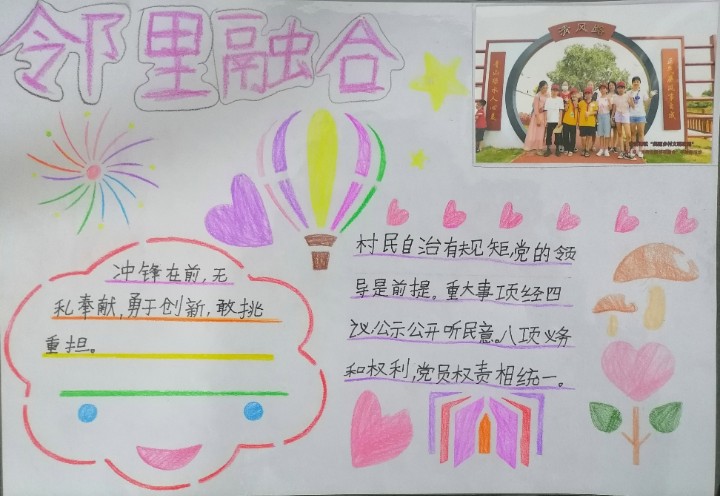 邻里融合
冲锋在前,无
私奉献,勇于创新,敢挑
重担。
村民自治有规矩,党的领
导是前提。重大事项经四
议公示公开听民意。八项义务
和权利,党员权责相统一。